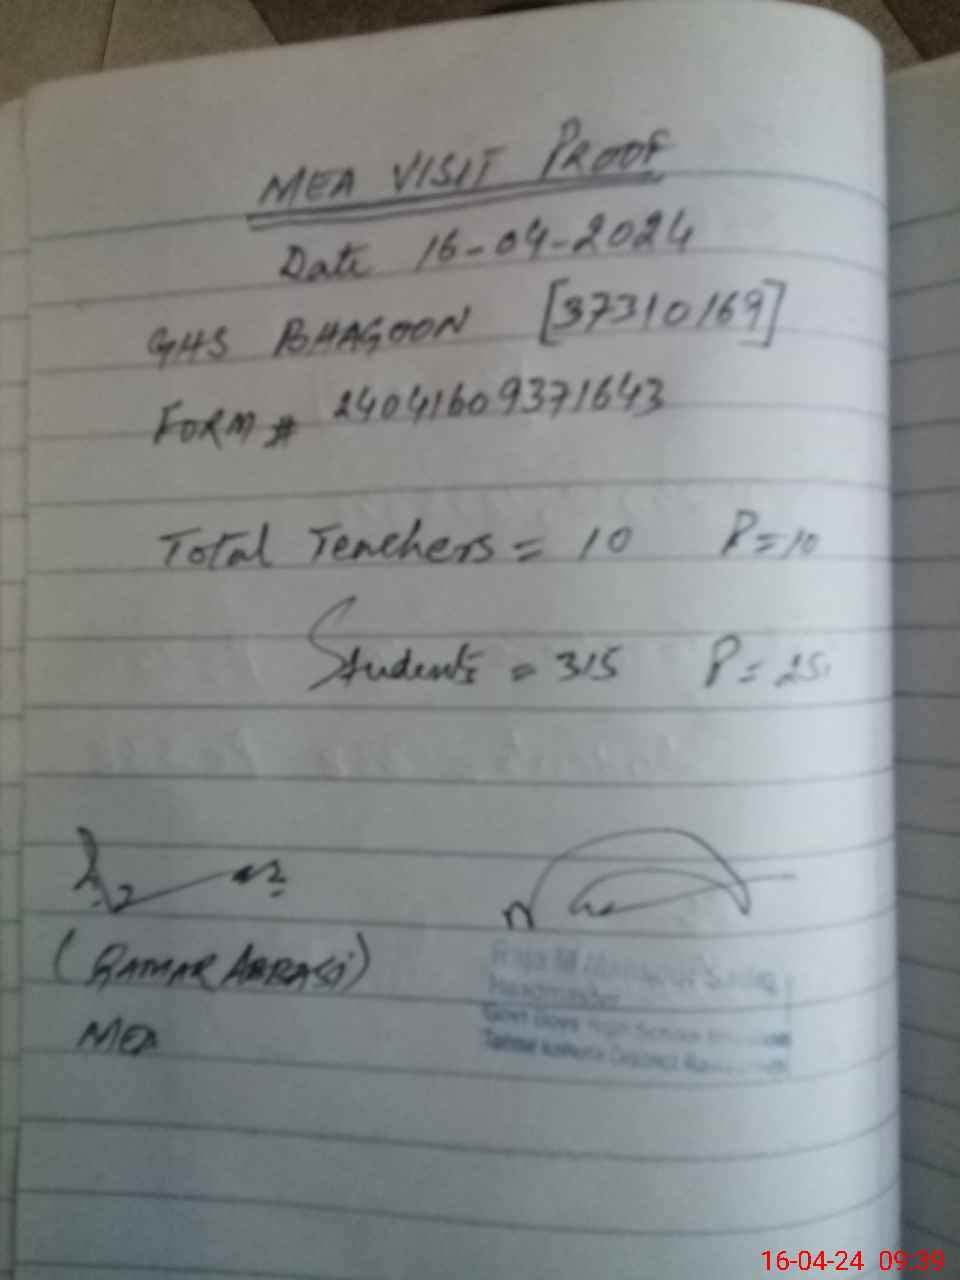 MEA VISIT PROOF
Date 16-04-2024
GHS BHAGOON [37310169]
FORM # 24041609371643
Total Teachers = 10 P=10
Students = 315 P = 25
(QAMAR ABBASI)
MEA
Raja M
Headmaster
Govt Boys High School
Tehsil Kahuta District
16-04-24 09:39